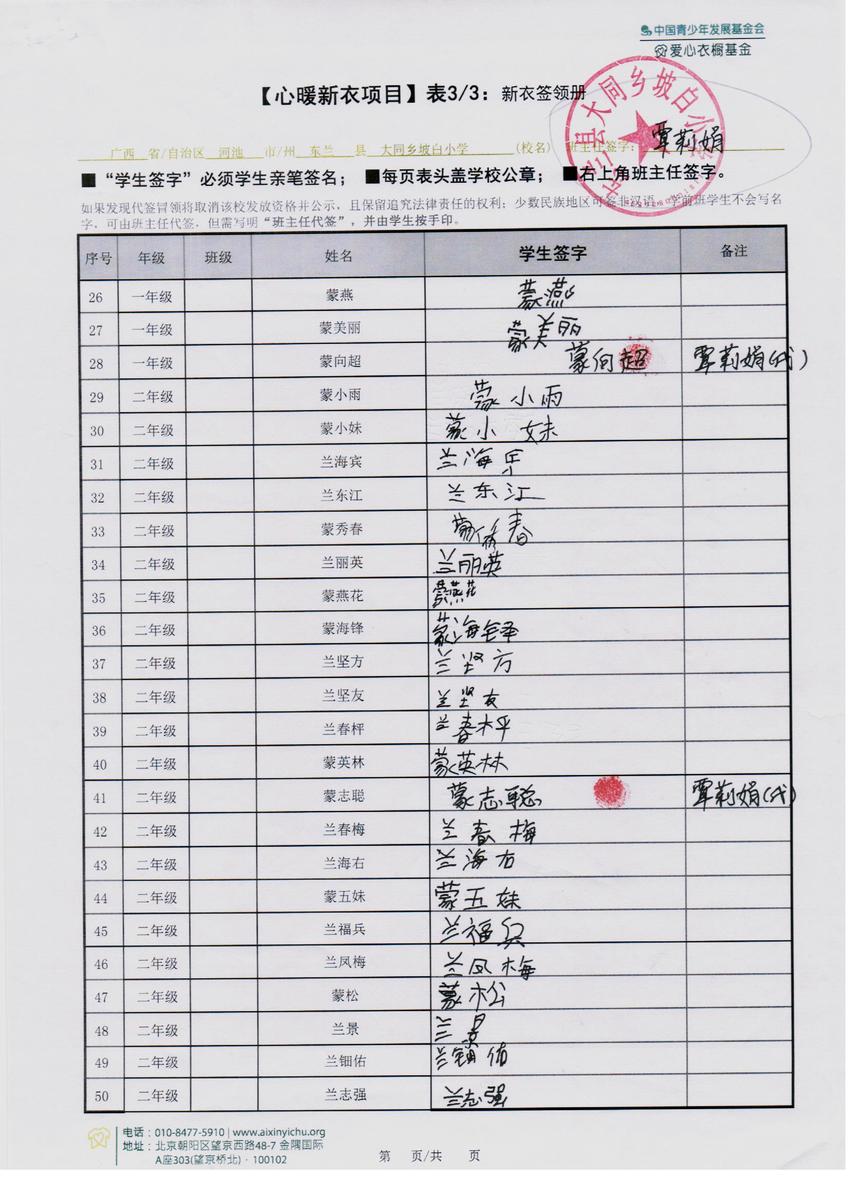 中国青少年发展基金会
爱心衣橱基金
【心暖新衣项目】表3/3：新衣签领册
兰县大同乡坡白小学
广西 省/自治区 河池 市/州 东兰 县 大同乡坡白小学 (校名) 班主任签字： 覃莉娟
■“学生签字”必须学生亲笔签名； ■每页表头盖学校公章； ■右上角班主任签字。
如果发现代签冒领将取消该校发放资格并公示，且保留追究法律责任的权利；少数民族地区可签非汉语，学前班学生不会写名
字，可由班主任代签，但需写明“班主任代签”，并由学生按手印。
序号 年级 班级 姓名 学生签字 备注
26 一年级 蒙燕 蒙燕
27 一年级 蒙美丽 蒙美丽
28 一年级 蒙向超 蒙向超 覃莉娟(代)
29 二年级 蒙小雨 蒙小雨
30 二年级 蒙小妹 蒙小妹
31 二年级 兰海宾 兰海
32 二年级 兰东江 兰东江
33 二年级 蒙秀春 蒙秀春
34 二年级 兰丽英 兰丽英
35 二年级 蒙燕花 蒙燕花
36 二年级 蒙海锋 蒙海锋
37 二年级 兰坚方 兰坚方
38 二年级 兰坚友 兰坚友
39 二年级 兰春枰 兰春枰
40 二年级 蒙英林 蒙英林
41 二年级 蒙志聪 蒙志聪 覃莉娟(代)
42 二年级 兰春梅 兰春梅
43 二年级 兰海右 兰海右
44 二年级 蒙五妹 蒙五妹
45 二年级 兰福兵 兰福兵
46 二年级 兰凤梅 兰凤梅
47 二年级 蒙松 蒙松
48 二年级 兰景 兰景
49 二年级 兰钿佑 兰钿佑
50 二年级 兰志强 兰志强
电话：010-8477-5910 | www.aixinyichu.org
地址：北京朝阳区望京西路48-7 金隅国际
A座303(望京桥北) · 100102
第 页/共 页